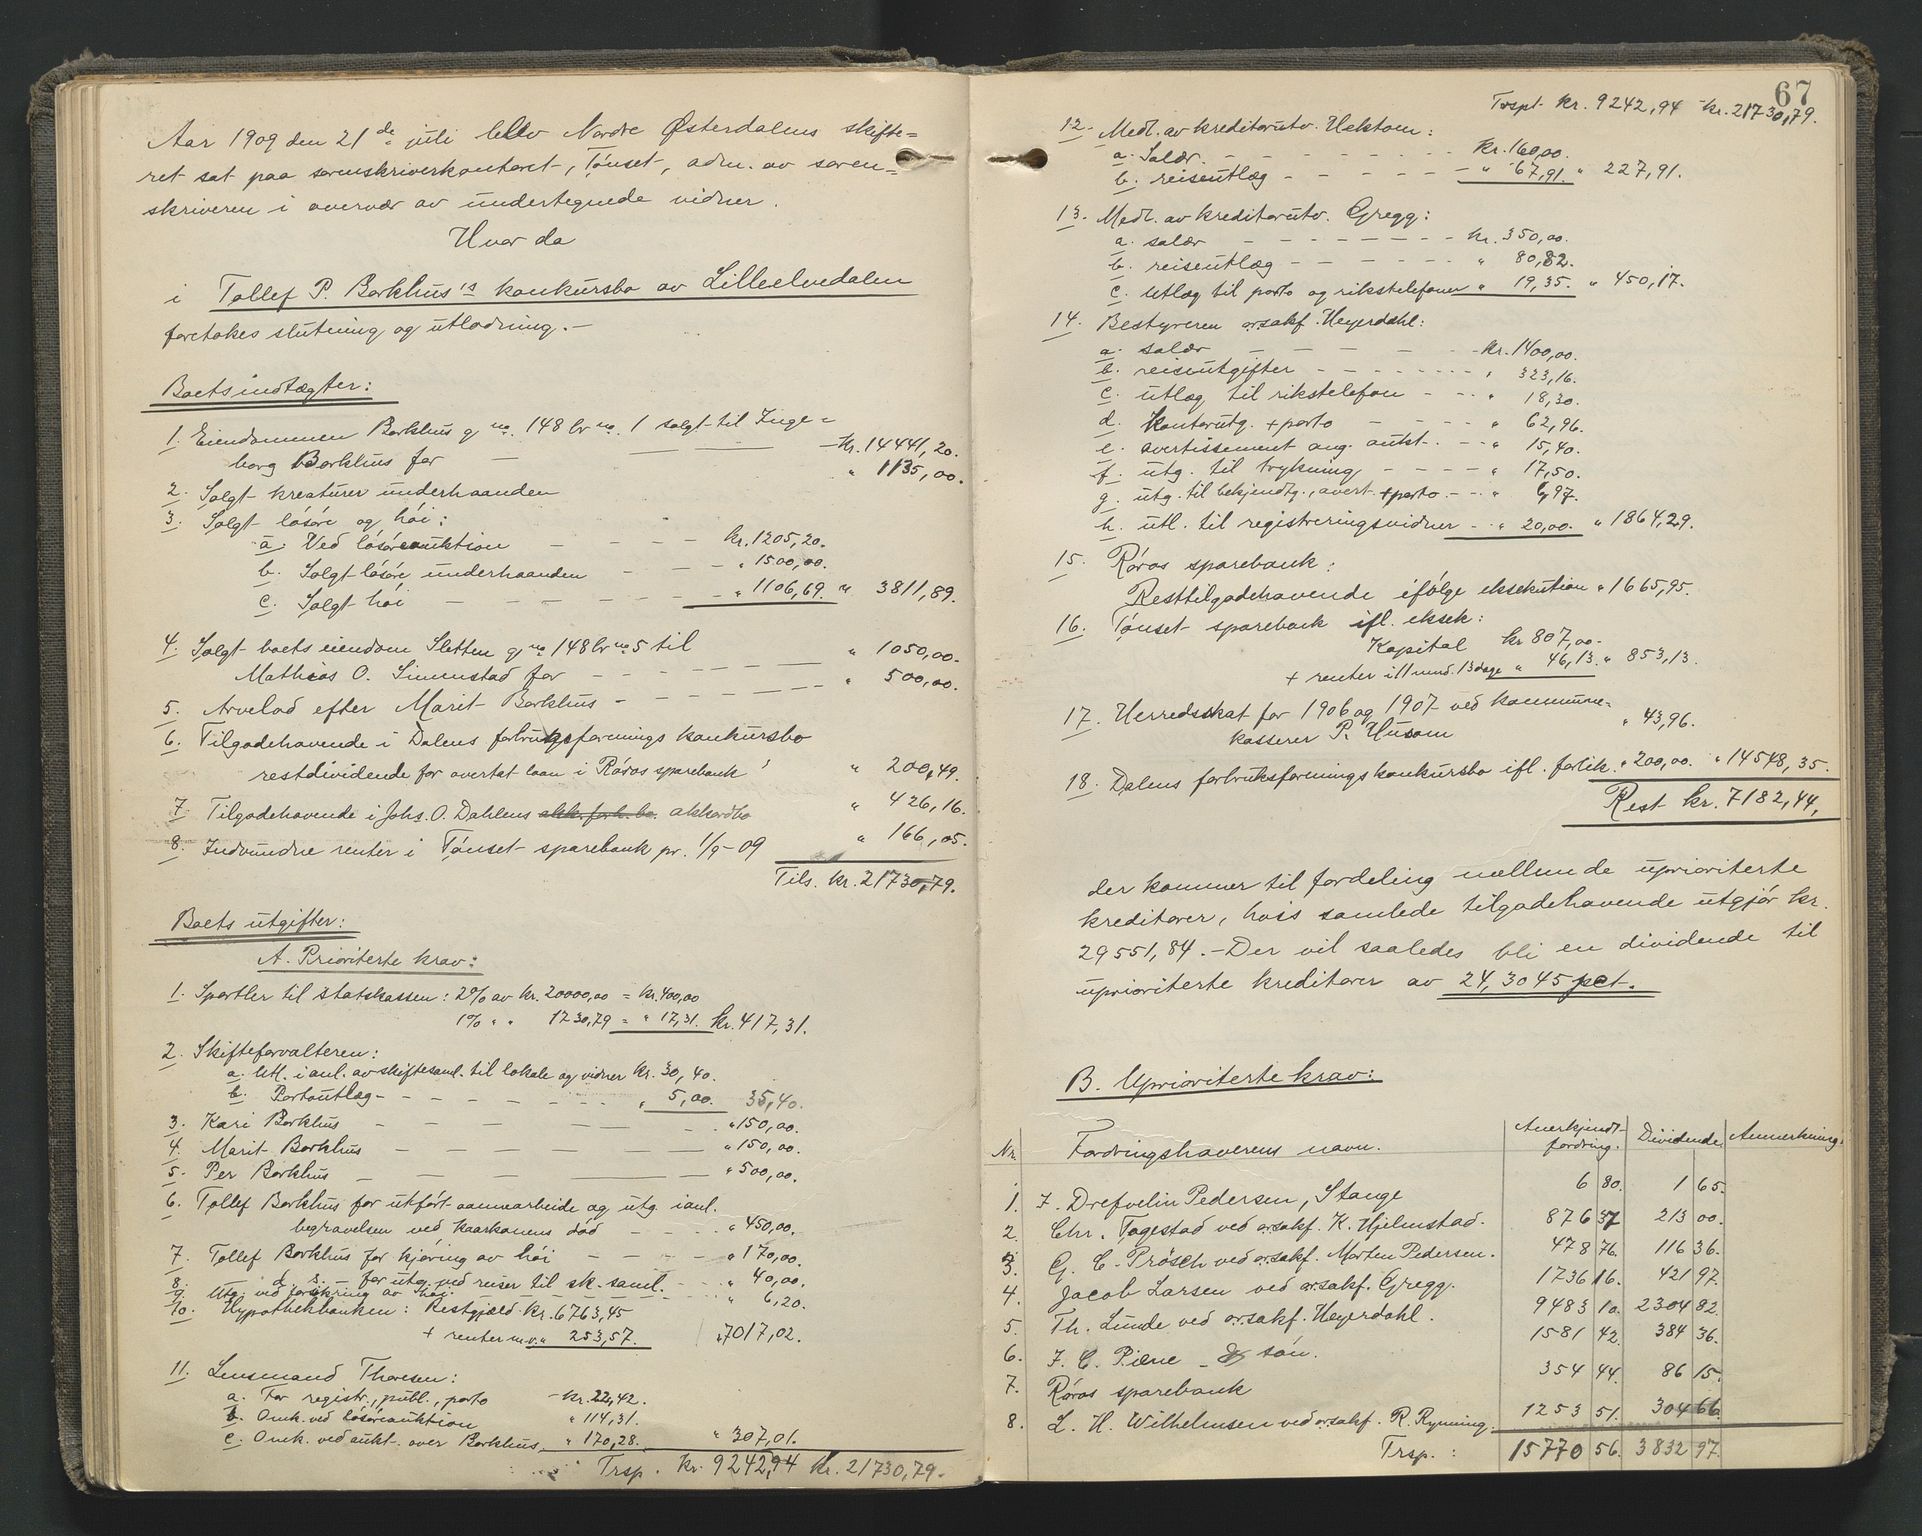 Aar 1909 den 21de juli blev Nordre Østerdalens skifte=
ret sat paa sorenskriverkontoret, Tønset, adm. av soren=
skriveren i overvær av undertegnede vidner.
Hvor da
i Tollef P. Borkhus's konkursbo av Lilleelvedalen
foretokes slutning og utlodning.-
Boets indtægter:
1. Eiendommen Borkhus g no. 148 br no. 1 solgt til Inge=
borg Borkhus for — — — — kr. 14441,20.
2. Solgt kreaturer underhaanden " 1135,00.
3. Solgt løsøre og høi:
a. Ved løsøreauktion - - - - kr. 1205,20.
b. Solgt løsøre underhaanden - - - " 1500,00.
c. Solgt høi - - - - - " 1106,69. " 3811,89.
4. Solgt boets eiendom Sletten g no 148 br no 5 til
Mathias O. Simenstad for - - - - - " 1050,00.
5. Arvelod efter Marit Borkhus - - - - " 500,00.
6. Tilgodehavende i Dalens forbruksforenings konkursbo
restdividende for overtat laan i Røros sparebank " 200,49.
7. Tilgodehavende i Johs. O. Dahlens akk. fork. bo. akkordbo " 426,16.
8. Indvundne renter i Tønset sparebank pr. 1/9-09 " 166,05.
Tils. kr. 21730,79.
Boets utgifter:
A. Prioriterte krav:
1. Sportler til statskassen: 2% av kr. 20000,00 = kr. 400,00
1% " " 1730,79 = " 17,31. kr. 417,31.
2. Skifteforvalteren:
a. Utl. i anl. av skiftesaml. til lokale og vidner kr. 30,40.
b. Portoutlæg - - - - - - " 5,00. 35,40.
3. Kari Borkhus - - - - - " 150,00.
4. Marit Borkhus - - - - - " 150,00.
5. Per Borkhus - - - - - " 500,00.
6. Tollef Borkhus for utført onnearbeide og utg. i anl.
begravelsen ved kaarkonens død - - - " 450,00.
7. Tollef Borkhus for kjøring av høi - - - - " 170,00.
8. — d. s. — for utg. ved reiser til sk. saml. - - - " 40,00.
9. Utg. ved forsikring av høi - - - - " 6,20.
10. Hypothekbanken: Restgjæld kr. 6763,45
+ renter m.v. " 253,57. " 7017,02.
11. Lensmand Thoresen:
a. For registr., publ., porto - kr. 22,42.
b. Omk. ved løsøreauktion " 114,31.
c. Omk. ved aukt. over Borkhus " 170,28. " 307,01.
Trsp. kr. 9242,94 kr. 21730,79.
67
Trspt kr. 9242,94 kr. 21730,79.
12. Medl. av kreditorutv. Hektoen:
a. Salær - - - - - - - kr. 160,00.
b. reiseutlæg - - - - - - " 67,91. " 227,91.
13. Medl. av kreditorutv. Gregg:
a. salær - - - - - - - kr. 350,00.
b. reiseutlæg - - - - - - " 80,82.
c. Utlæg til porto og rikstelefoner " 19,35. " 450,17.
14. Bestyreren o.r.sakf. Heyerdahl:
a. salær - - - - - kr. 1400,00.
b. reiseutgifter - - - - - - " 323,16.
c. utlæg til rikstelefon - - - " 18,30.
d. Kontorutg. + porto - - - - " 62,96.
e. avertissement ang. aukt. - - - " 15,40.
f. utg. til trykning - - - - " 17,50.
g. utg. til bekjendtg., avert. + porto - - " 6,97.
h. utl. til registreringsvidner - - " 20,00. " 1864,29.
15. Røros sparebank:
Resttilgodehavende ifølge eksekution " 1665,95.
16. Tønset sparebank ifl. eksek:
Kapital kr 807,00.
+ renter i 11 mnd. 13 dage " 46,13. " 853,13.
17. Herredsskat for 1906 og 1907 ved kommune-
kasserer P. Husom " 43,96.
18. Dalens forbruksforenings konkursbo ifl. forlik. " 200,00. " 14548,35.
Rest kr. 7182,44,
der kommer til fordeling mellem de uprioriterte
kreditorer, hvis samlede tilgodehavende utgjør kr.
29551,84. - Der vil saaledes bli en dividende til
uprioriterte kreditorer av 24,3045 pct.
B. Uprioriterte krav:
Nr. Fordringshaverens navn. Anerkjendt fordring. Dividende. Anmerkning.
1. J. Drefvelin Pedersen, Stange 6 80. 1 65.
2. Chr. Fogestad ved o.r.sakf. K. Hjelmstad. 876 37 213 00.
3. G. C. Prösch ved o.r.sakf. Morten Pedersen. 478 76. 116 36.
4. Jacob Larsen ved o.r.sakf. Gregg. 1736 16. 421 97.
5. Th. Lunde ved o.r.sakf. Heyerdahl. 9483 10. 2304 82.
6. J. C. Piene & søn. 1581 42. 384 36.
7. Røros sparebank 354 44. 86 15.
8. L. H. Wilhelmsen ved o.r.sakf. R. Rynning. 1253 51. 304 66.
Trsp.: 15770 56. 3832 97.